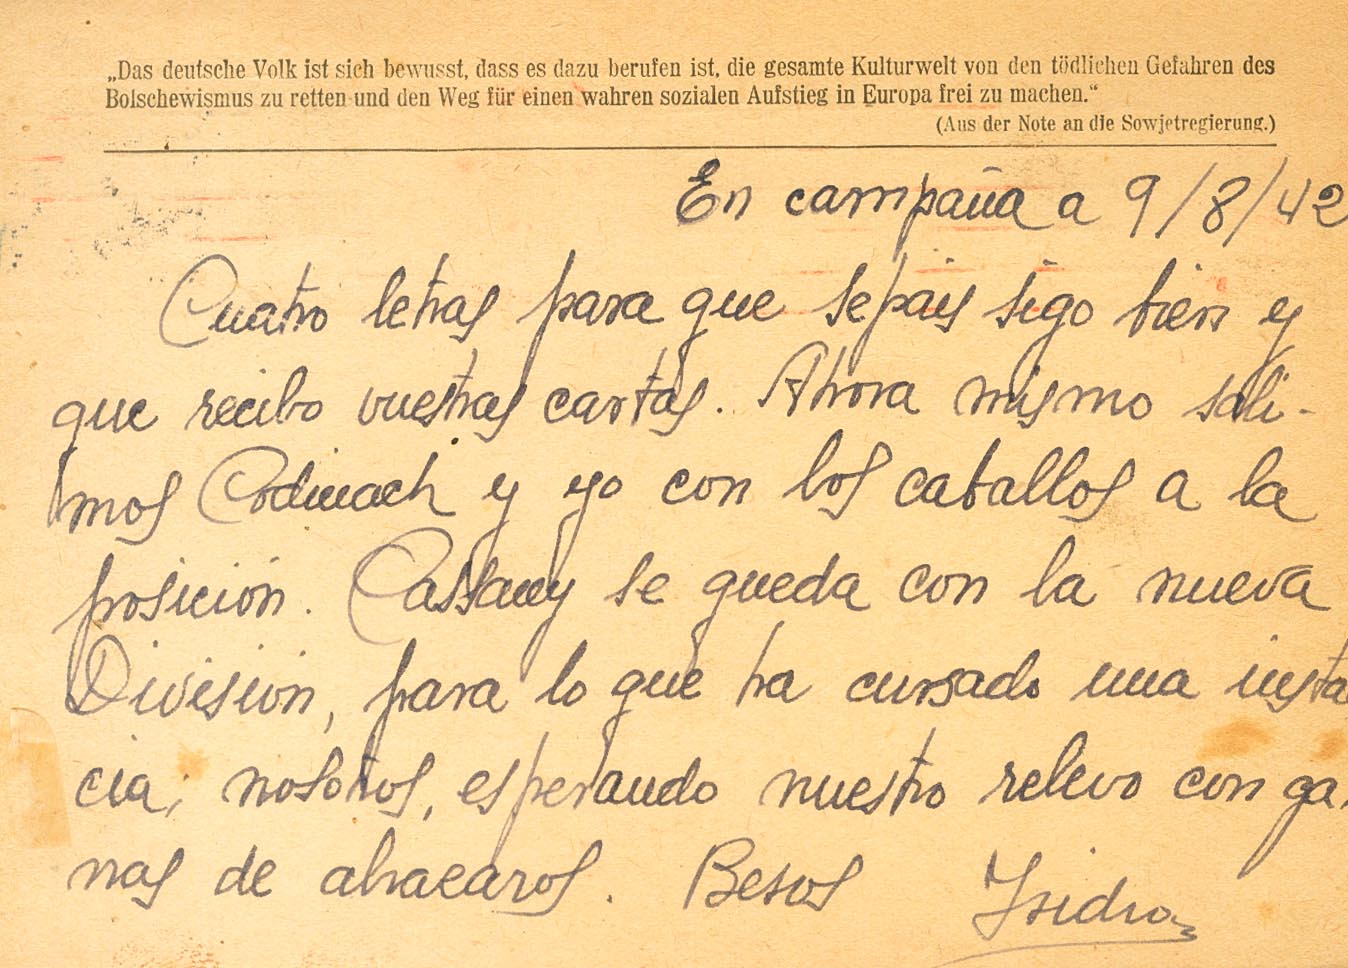 „Das deutsche Volk ist sich bewusst, dass es dazu berufen ist, die gesamte Kulturwelt von den tödlichen Gefahren des
Bolschewismus zu retten und den Weg für einen wahren sozialen Aufstieg in Europa frei zu machen.“
(Aus der Note an die Sowjetregierung.)
En campaña a 9/8/42
Cuatro letras para que sepais sigo bien y
que recibo vuestras cartas. Ahora mismo sali-
mos Codinach y yo con los caballos a la
posición. Cassany se queda con la nueva
División, para lo que ha cursado una insta
cia, nosotros, esperando nuestro relevo con ga-
nas de abrazaros. Besos Isidro